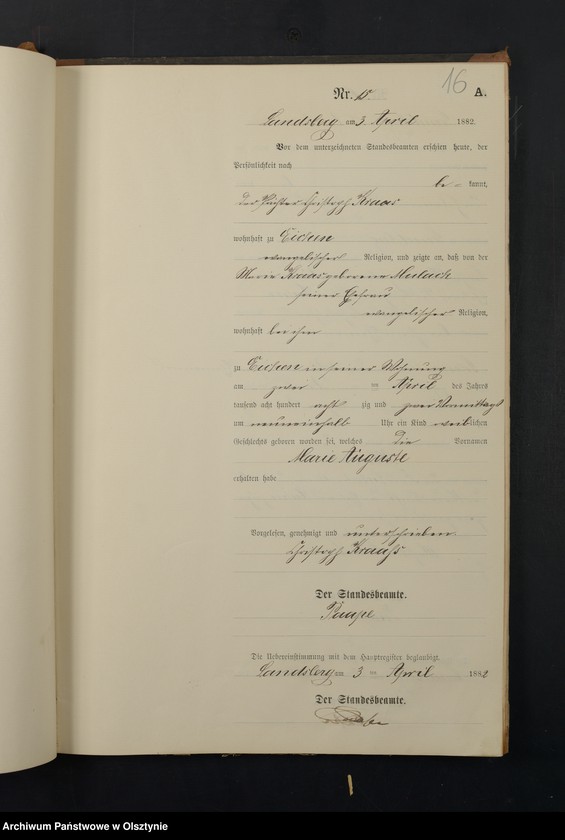 16
Nr. 15. A.
Landsberg am 3. April 1882.
Vor dem unterzeichneten Standesbeamten erschien heute, der
Persönlichkeit nach
be = kannt,
der Pächter Christoph Kraas
wohnhaft zu Eichen
evangelischer Religion, und zeigte an, daß von der
Marie Kraas geborene
seiner Ehefrau
evangelischer Religion,
wohnhaft bei ihm
zu Eichen in seiner Wohnung
am zwei ten April des Jahres
tausend acht hundert acht zig und zwei Vormittags
um neuneinhalb Uhr ein Kind weiblichen
Geschlechts geboren worden sei, welches die Vornamen
Marie Auguste
erhalten habe
Vorgelesen, genehmigt und unterschrieben.
Christoph Krauss
Der Standesbeamte.
Die Uebereinstimmung mit dem Hauptregister beglaubigt.
Landsberg am 3 ten April 1882
Der Standesbeamte.
Archiwum Państwowe w Olsztynie